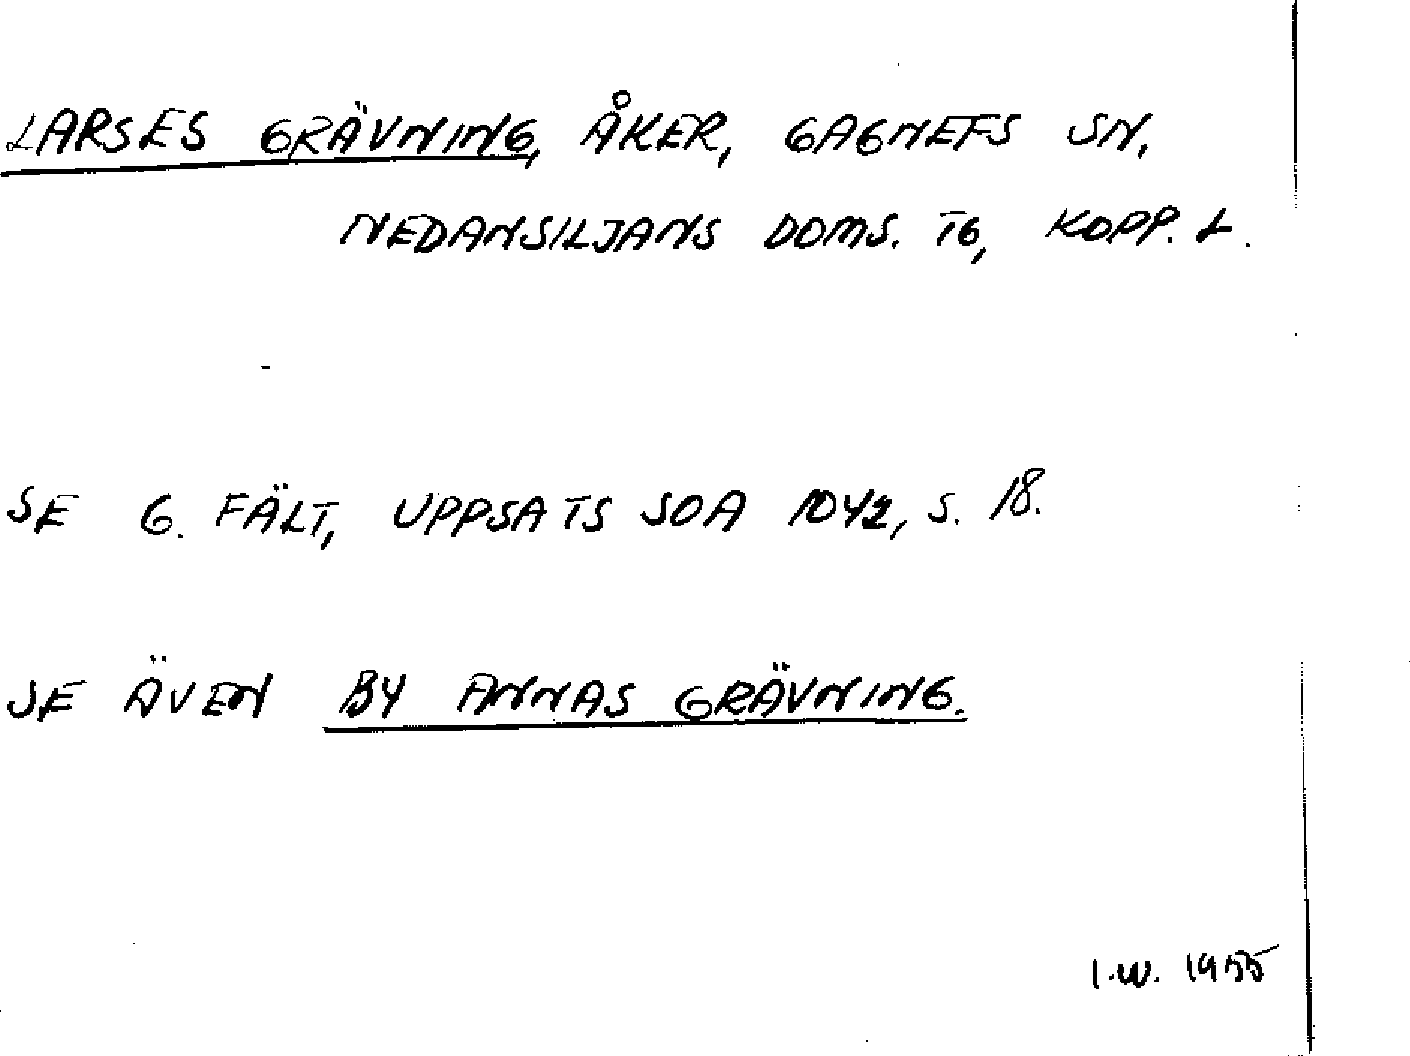 LARSES GRÄVNING, ÅKER, GAGNEFS SN,
NEDANSILJANS DOMS. TG, KOPP. L.
SE G. FÄLT, UPPSATS SOA 1042, S. 18.
SE ÄVEN BY ANNAS GRÄVNING.
I.W. 1955